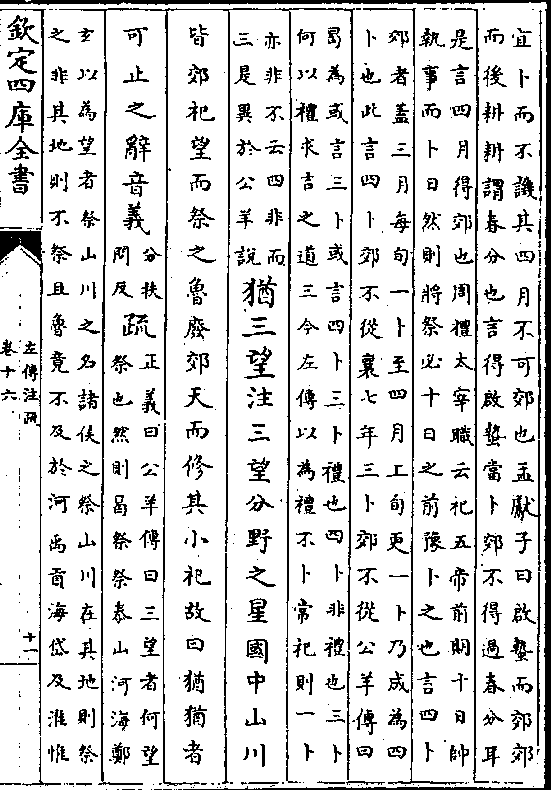 宜卜而不譏其四月不可郊也孟獻子曰啟蟄而郊郊
而後耕耕謂春分也言得啟蟄當卜郊不得過春分耳
是言四月得郊也周禮太宰職云祀五帝前期十日帥
執事而卜日然則將祭必十日之前豫卜之也言四卜
郊者蓋三月每旬一卜至四月上旬更一卜乃成為四
卜也此言四卜郊不從襄七年三卜郊不從公羊傳曰
曷為或言三卜或言四卜三卜禮也四卜非禮也三卜
何以禮求吉之道三今左傳以為禮不卜常祀則一卜
亦非不云四非而
三是異於公羊說
猶三望注三望分野之星國中山川
皆郊祀望而祭之魯廢郊天而修其小祀故曰猶猶者
可止之辭音義
分扶
問反
疏
正義曰公羊傳曰三望者何望
祭也然則曷祭祭泰山河海鄭
玄以為望者祭山川之名諸侯之祭山川在其地則祭
之非其地則不祭且魯竟不及於河禹貢海岱及淮惟
欽定四庫全書
左傳注疏
卷十六
十一